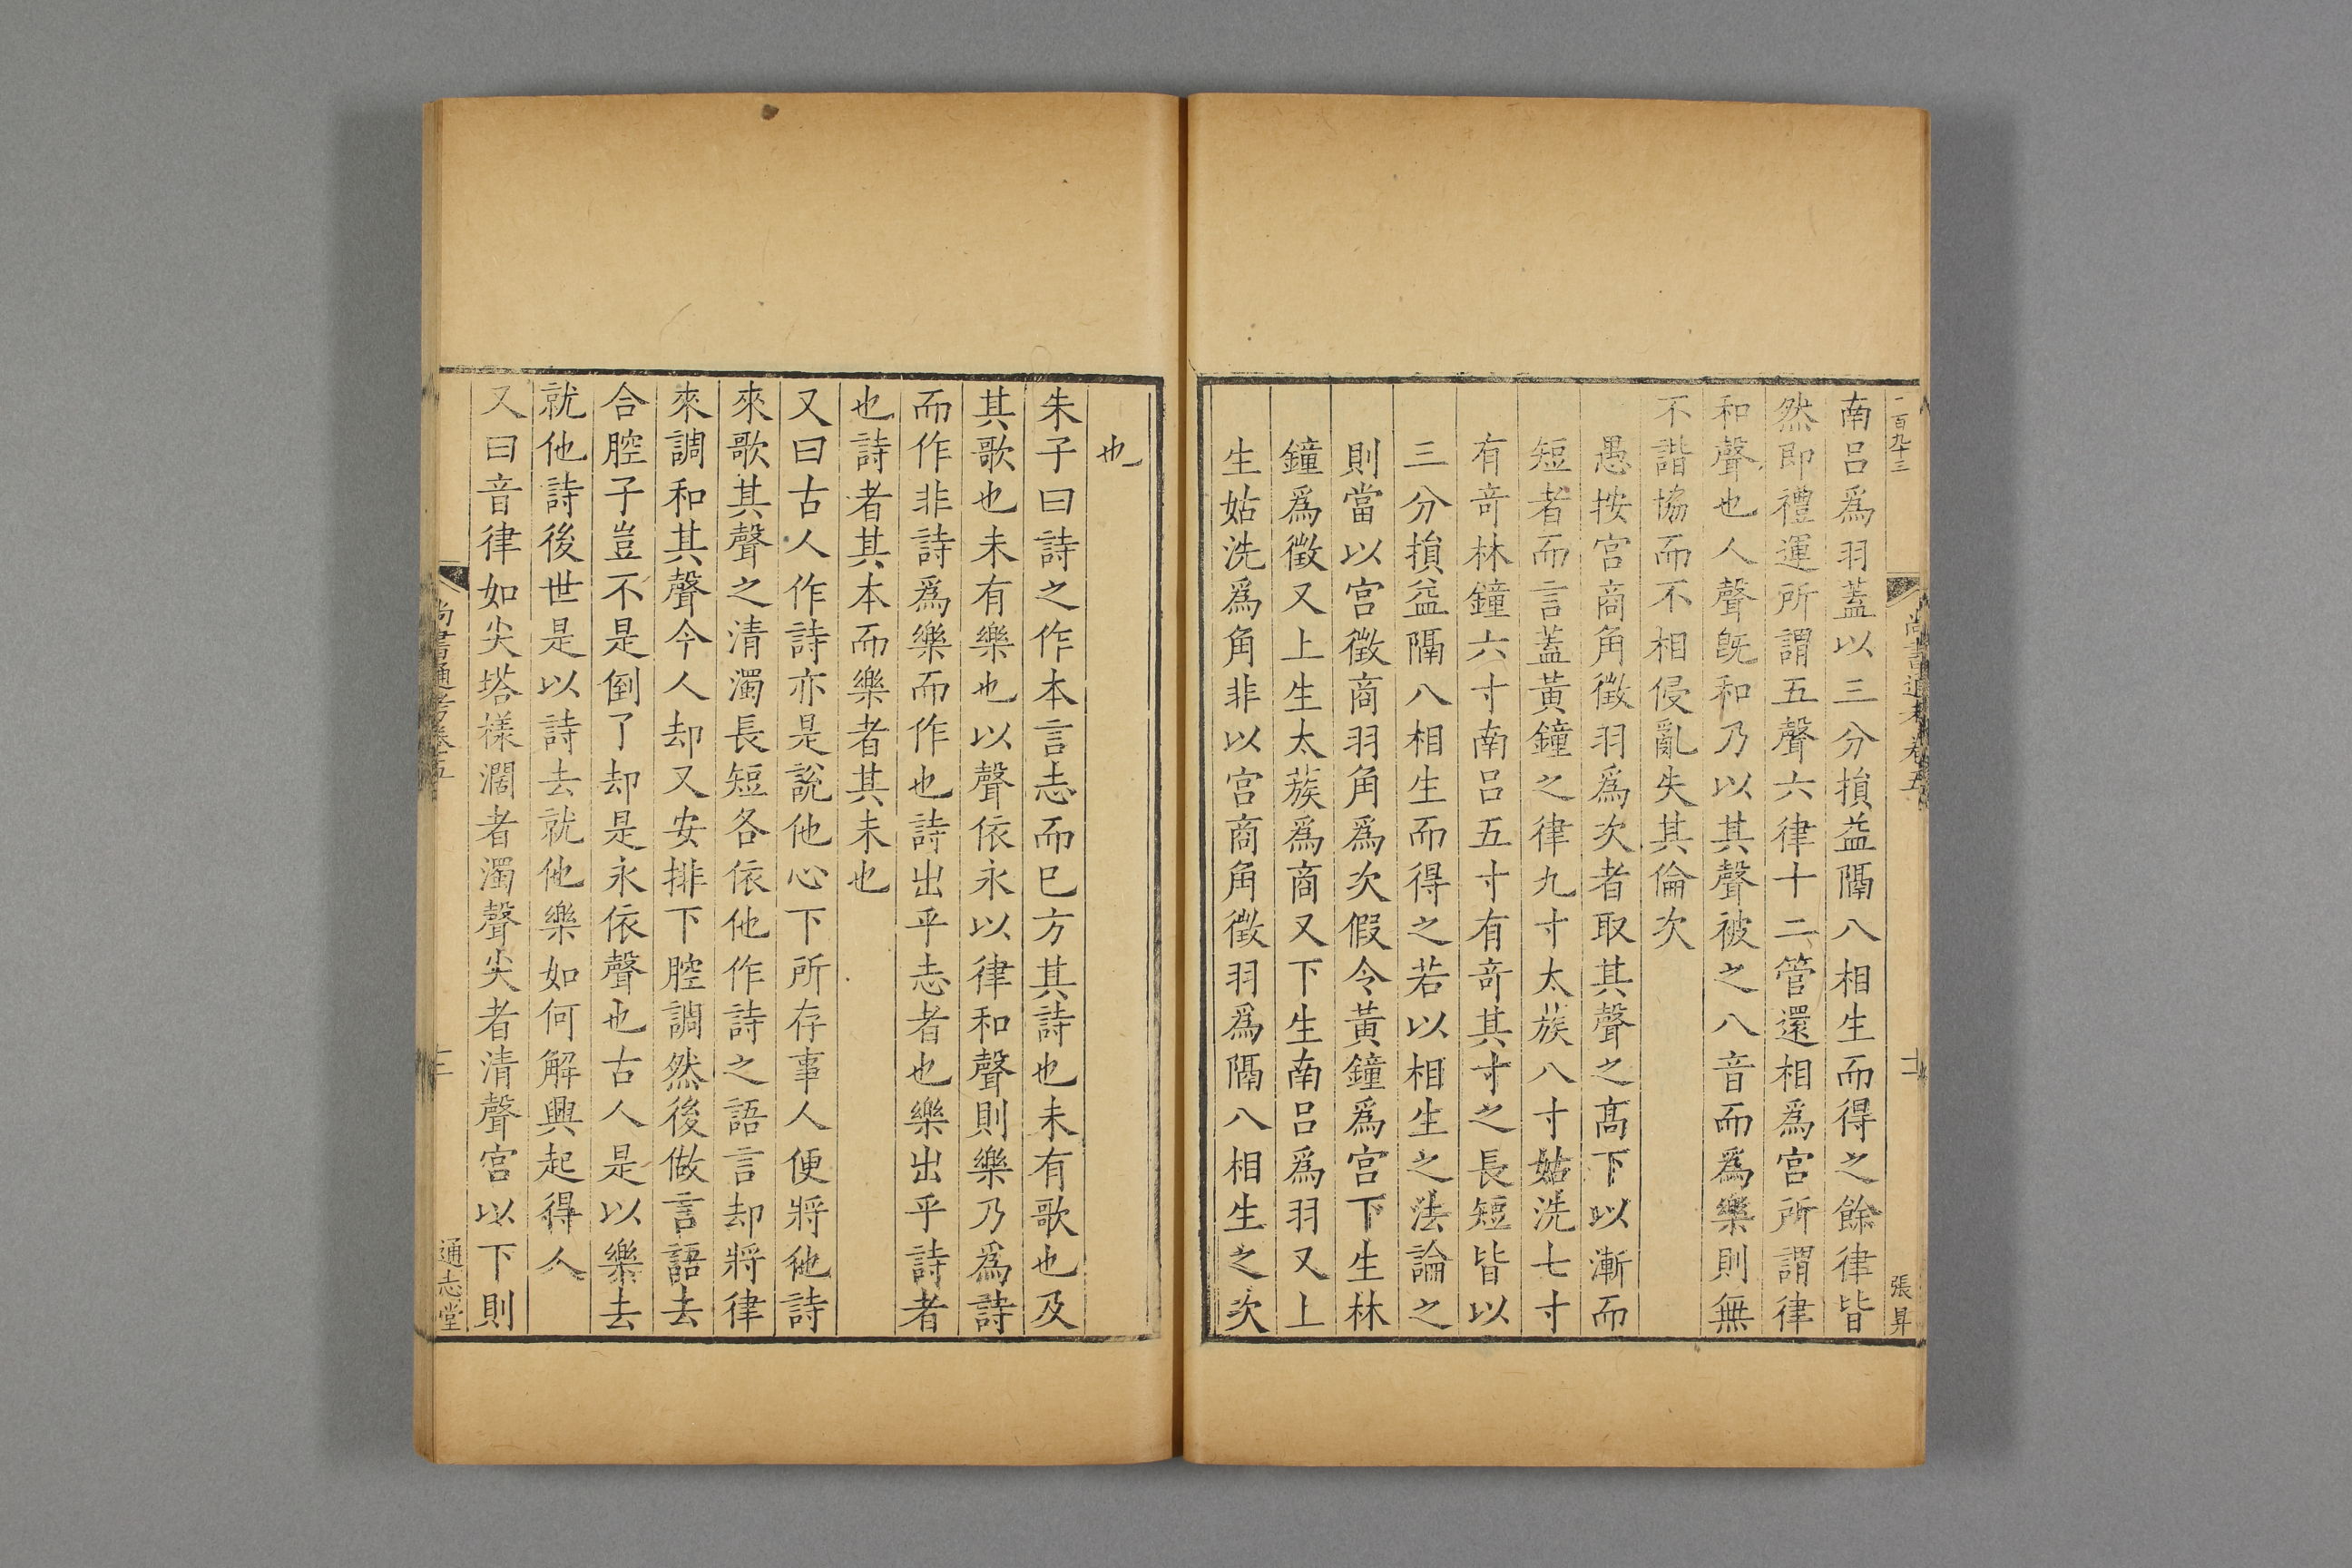 一百九十三
尚書通考卷五
十
張昇
南呂爲羽蓋以三分損益隔八相生而得之餘律皆
然即禮運所謂五聲六律十二管還相爲宮所謂律
和聲也人聲旣和乃以其聲被之八音而爲樂則無
不諧協而不相侵亂失其倫次
愚按宮商角徵羽爲次者取其聲之髙下以漸而
短者而言蓋黃鐘之律九寸太蔟八寸姑洗七寸
有竒林鐘六寸南呂五寸有竒其寸之長短皆以
三分損益隔八相生而得之若以相生之法論之
則當以宮徵商羽角爲次假令黃鐘爲宮下生林
鐘爲徵又上生太蔟爲商又下生南呂爲羽又上
生姑洗爲角非以宮商角徵羽爲隔八相生之次
也
朱子曰詩之作本言志而已方其詩也未有歌也及
其歌也未有樂也以聲依永以律和聲則樂乃爲詩
而作非詩爲樂而作也詩出乎志者也樂出乎詩者
也詩者其本而樂者其末也
又曰古人作詩亦是說他心下所存事人便將他詩
來歌其聲之清濁長短各依他作詩之語言却將律
來調和其聲今人却又安排下腔調然後做言語去
合腔子豈不是倒了却是永依聲也古人是以樂去
就他詩後世是以詩去就他樂如何解興起得人
又曰音律如尖塔樣濶者濁聲尖者清聲宮以下則
尚書通考卷五
通志堂